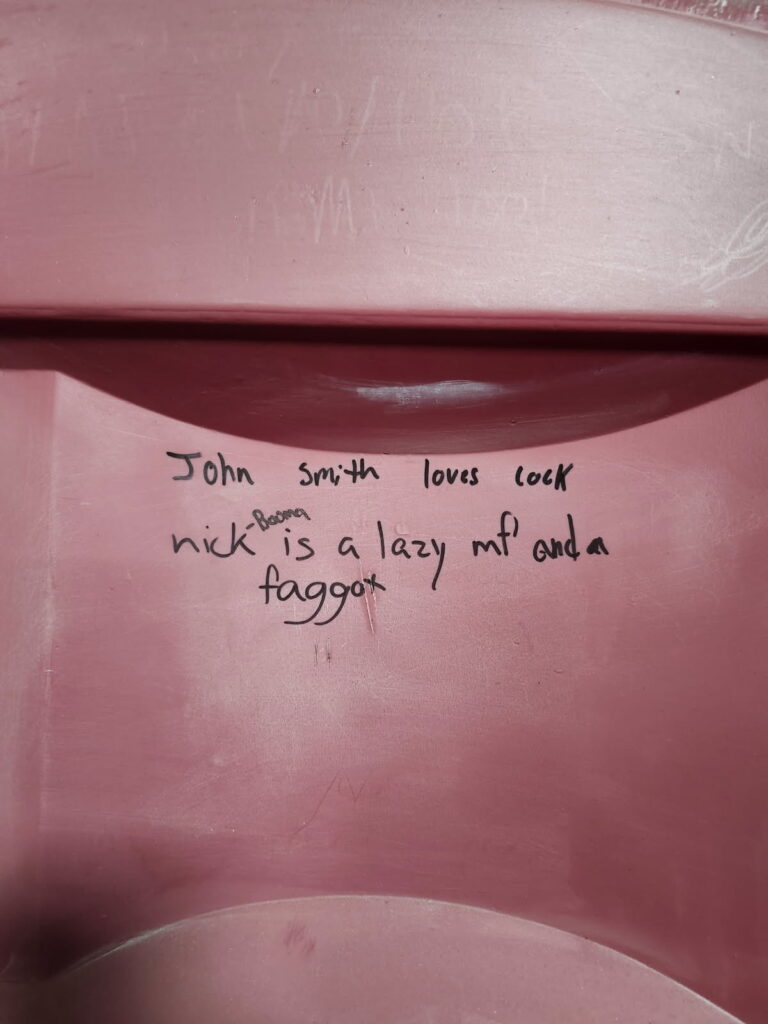 John smith loves cock
nick-Booma is a lazy mf' and a
faggot